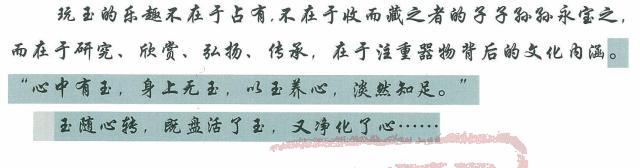 玩玉的乐趣不在于占有,不在于收而藏之者的子子孙孙永宝之,
而在于研究、欣赏、弘扬、传承，在于注重器物背后的文化内涵。
“心中有玉，身上无玉，以玉养心，淡然知足。”
玉随心转，既盘活了玉，又净化了心……